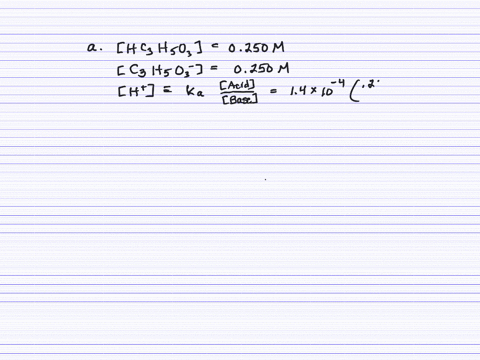 a. [HC₃H₅O₃] = 0.250 M
[C₃H₅O₃⁻] = 0.250 M
[H⁺] = Ka [Acid]/[Base] = 1.4 × 10⁻⁴ (.2